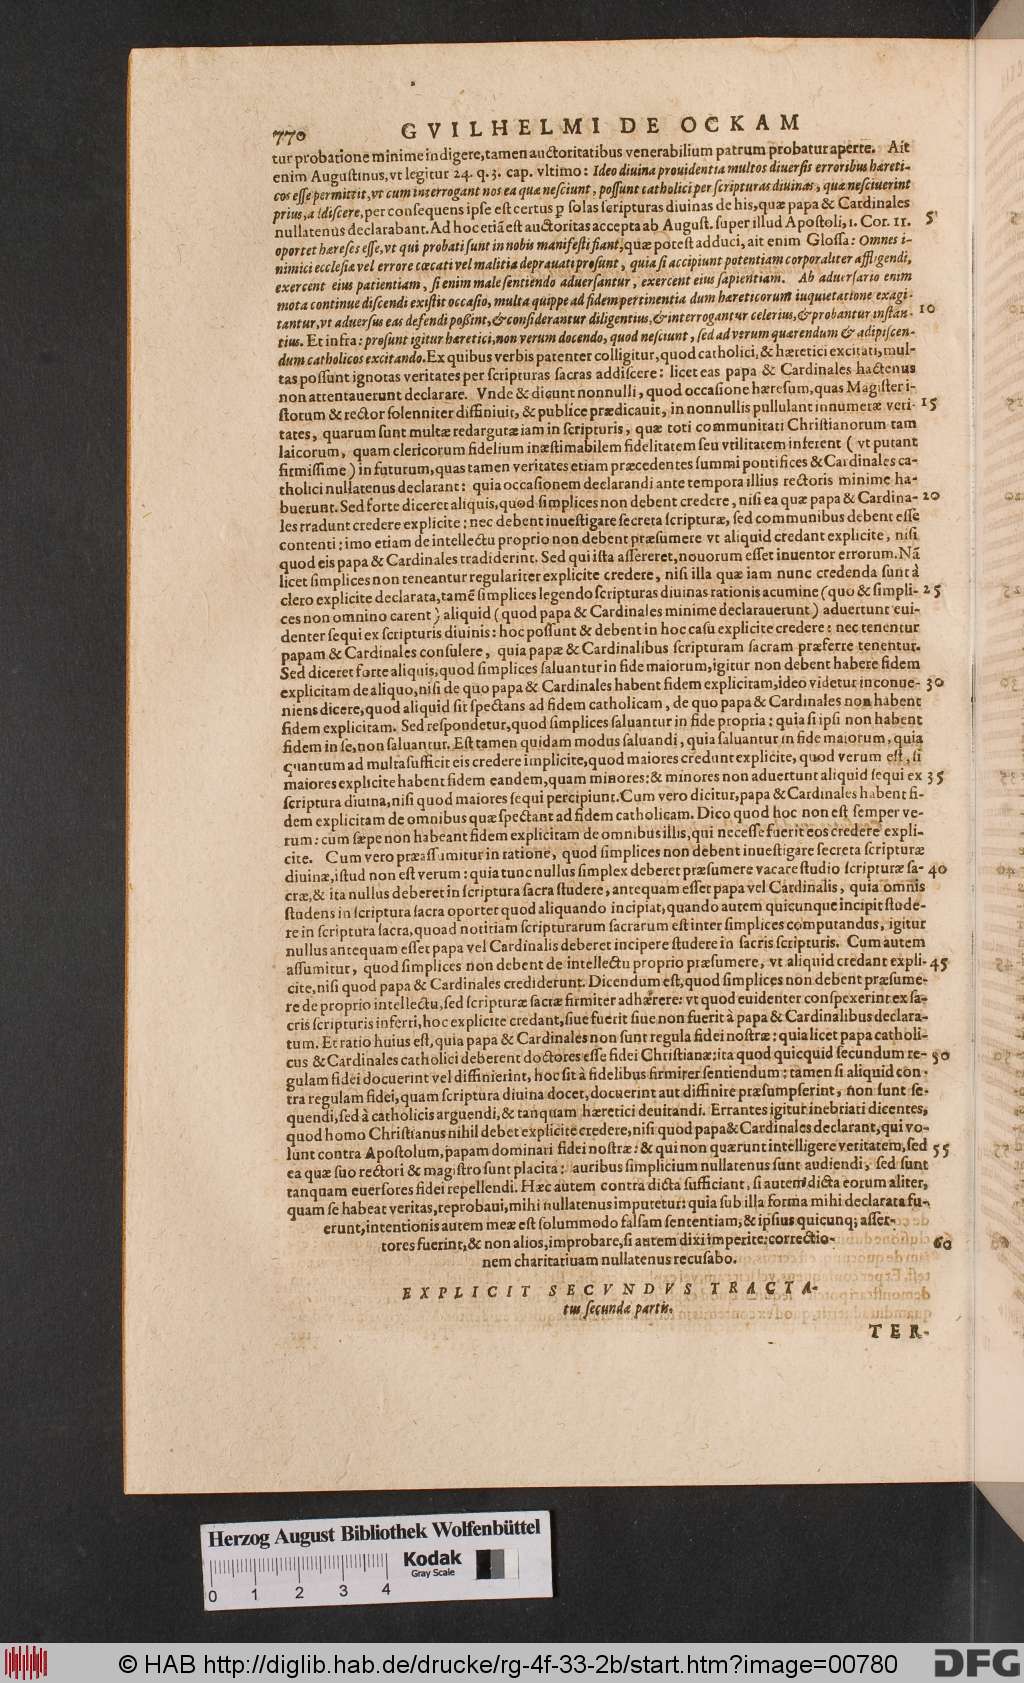 770 GVILHELMI DE OCKAM
tur probatione minime indigere, tamen auctoritatibus venerabilium patrum probatur aperte. Ait
enim Augustinus, vt legitur 24. q. 3. cap. vltimo: Ideo diuina prouidentia multos diuersis erroribus hæreti-
cos esse permittit, vt cum interrogant nos ea quæ nesciunt, possunt catholici per scripturas diuinas, quæ nesciuerint
prius, addiscere, per consequens ipse est certus ꝑ solas scripturas diuinas de his, quæ papa & Cardinales
nullatenus declarabant. Ad hoc etiã est auctoritas accepta ab August. super illud Apostoli, 1. Cor. 11. 5
oportet hæreses esse, vt qui probati sunt in nobis manifesti fiant, quæ potest adduci, ait enim Glossa: Omnes i-
nimici ecclesiæ vel errore cæcati vel malitia deprauati prosunt, quia si accipiunt potentiam corporaliter affligendi,
exercent eius patientiam, si enim male sentiendo aduersantur, exercent eius sapientiam. Ab aduersario enim
mota continue discendi existit occasio, multa quippe ad fidem pertinentia dum hæreticorum inquietatione exagi-
tantur, vt aduersus eas defendi possint, & considerantur diligentius, & interrogantur celerius, & probantur instan- 10
tius. Et infra: prosunt igitur hæretici, non verum docendo, quod nesciunt, sed ad verum quærendum & adipiscen-
dum catholicos excitando. Ex quibus verbis patenter colligitur, quod catholici, & hæretici excitati, mul-
tas possunt ignotas veritates per scripturas sacras addiscere: licet eas papa & Cardinales hactenus
non attentauerunt declarare. Vnde & dicunt nonnulli, quod occasione hæresum, quas Magister i-
storum & rector solenniter diffiniuit, & publice prædicauit, in nonnullis pullulant innumeræ veri- 15
tates, quarum sunt multæ redargutæ iam in scripturis, quæ toti communitati Christianorum tam
laicorum, quam clericorum fidelium inæstimabilem fidelitatem seu vtilitatem inferent (vt putant
firmissime) in futurum, quas tamen veritates etiam præcedentes summi pontifices & Cardinales ca-
tholici nullatenus declarant: quia occasionem declarandi ante tempora illius rectoris minime ha-
buerunt. Sed forte diceret aliquis, quod simplices non debent credere, nisi ea quæ papa & Cardina- 20
les tradunt credere explicite; nec debent inuestigare secreta scripturæ, sed communibus debent esse
contenti: imo etiam de intellectu proprio non debent præsumere vt aliquid credant explicite, nisi
quod eis papa & Cardinales tradiderint. Sed qui ista assereret, nouorum esset inuentor errorum. Nã
licet simplices non teneantur regulariter explicite credere, nisi illa quæ iam nunc credenda sunt à
clero explicite declarata, tamẽ simplices legendo scripturas diuinas rationis acumine (quo & simpli- 25
ces non omnino carent) aliquid (quod papa & Cardinales minime declarauerunt) aduertunt eui-
denter sequi ex scripturis diuinis: hoc possunt & debent in hoc casu explicite credere: nec tenentur
papam & Cardinales consulere, quia papæ & Cardinalibus scripturam sacram præferre tenentur.
Sed diceret forte aliquis, quod simplices saluantur in fide maiorum, igitur non debent habere fidem
explicitam de aliquo, nisi de quo papa & Cardinales habent fidem explicitam, ideo videtur inconue- 30
niens dicere, quod aliquid sit spectans ad fidem catholicam, de quo papa & Cardinales non habent
fidem explicitam. Sed respondetur, quod simplices saluantur in fide propria: quia si ipsi non habent
fidem in se, non saluantur. Est tamen quidam modus saluandi, quia saluantur in fide maiorum, quia
quantum ad multa sufficit eis credere implicite, quod maiores credunt explicite, quod verum est, si
maiores explicite habent fidem eandem, quam minores: & minores non aduertunt aliquid sequi ex 35
scriptura diuina, nisi quod maiores sequi percipiunt. Cum vero dicitur, papa & Cardinales habent fi-
dem explicitam de omnibus quæ spectant ad fidem catholicam. Dico quod hoc non est semper ve-
rum: cum sæpe non habeant fidem explicitam de omnibus illis, qui necesse fuerit eos credere expli-
cite. Cum vero præassumitur in ratione, quod simplices non debent inuestigare secreta scripturæ
diuinæ, istud non est verum: quia tunc nullus simplex deberet præsumere vacare studio scripturæ sa- 40
cræ, & ita nullus deberet in scriptura sacra studere, antequam esset papa vel Cardinalis, quia omnis
studens in scriptura sacra oportet quod aliquando incipiat, quando autem quicunque incipit stude-
re in scriptura sacra, quoad notitiam scripturarum sacrarum est inter simplices computandus, igitur
nullus antequam esset papa vel Cardinalis deberet incipere studere in sacris scripturis. Cum autem
assumitur, quod simplices non debent de intellectu proprio præsumere, vt aliquid credant expli- 45
cite, nisi quod papa & Cardinales crediderunt. Dicendum est, quod simplices non debent præsume-
re de proprio intellectu, sed scripturæ sacræ firmiter adhærere: vt quod euidenter conspexerint ex sa-
cris scripturis inferri, hoc explicite credant, siue fuerit siue non fuerit à papa & Cardinalibus declara-
tum. Et ratio huius est, quia papa & Cardinales non sunt regula fidei nostræ: quia licet papa catholi-
cus & Cardinales catholici deberent doctores esse fidei Christianæ: ita quod quicquid secundum re- 50
gulam fidei docuerint vel diffinierint, hoc sit à fidelibus firmiter sentiendum: tamen si aliquid con-
tra regulam fidei, quam scriptura diuina docet, docuerint aut diffinire præsumpserint, non sunt se-
quendi, sed à catholicis arguendi, & tanquam hæretici deuitandi. Errantes igitur inebriati dicentes,
quod homo Christianus nihil debet explicite credere, nisi quod papa & Cardinales declarant, qui vo-
lunt contra Apostolum, papam dominari fidei nostræ: & qui non quærunt intelligere veritatem, sed 55
ea quæ suo rectori & magistro sunt placita: auribus simplicium nullatenus sunt audiendi, sed sunt
tanquam euersores fidei repellendi. Hæc autem contra dicta sufficiant, si autem dicta eorum aliter,
quam se habeat veritas, reprobaui, mihi nullatenus imputetur: quia sub illa forma mihi declarata fu-
erunt, intentionis autem meæ est solummodo falsam sententiam, & ipsius quicunq; asser-
tores fuerint, & non alios, improbare, si autem dixi imperite: correctio- 60
nem charitatiuam nullatenus recusabo.
EXPLICIT SECVNDVS TRACTA-
tus secundæ partis.
TER-
Herzog August Bibliothek Wolfenbüttel
Kodak
Gray Scale
0 1 2 3 4
© HAB http://diglib.hab.de/drucke/rg-4f-33-2b/start.htm?image=00780
DFG